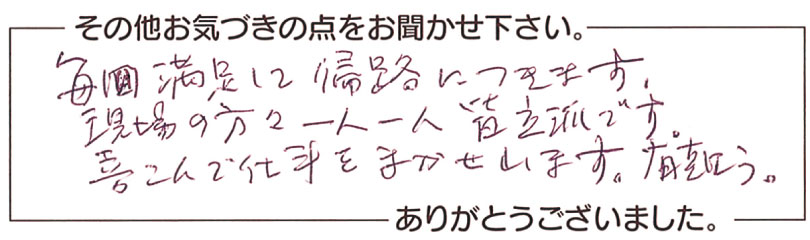 その他お気づきの点をお聞かせ下さい。
毎回満足して帰路につきます。
現場の方々一人一人皆立派です。
喜こんで仕事をまかせいます。有難う。
ありがとうございました。